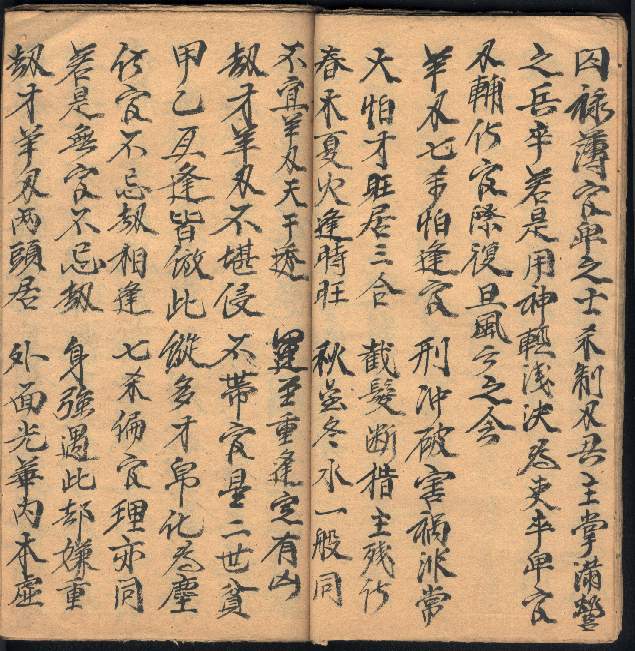 囚禄薄官卑之士杀制刃兵主掌满營
之兵卒若是用神輕浅决為吏卒卑官
刃輔化官際復旦風云之会
羊刃七杀怕逢官 刑冲破害禍非常
大怕才旺居三合 截髮断指主残
春木夏火逢時旺 秋金冬水一般同
不宜羊刃天干透 運至重逢定有凶
刼才羊刃不堪侵 不带官星二世貧
甲乙互逢皆倣此 縱多才帛化為塵
官不忌刼相逢 七杀偏官理亦同
若是無官不忌刼 身强遇此却嫌重
刼才羊刃两頭居 外面光華内本虚